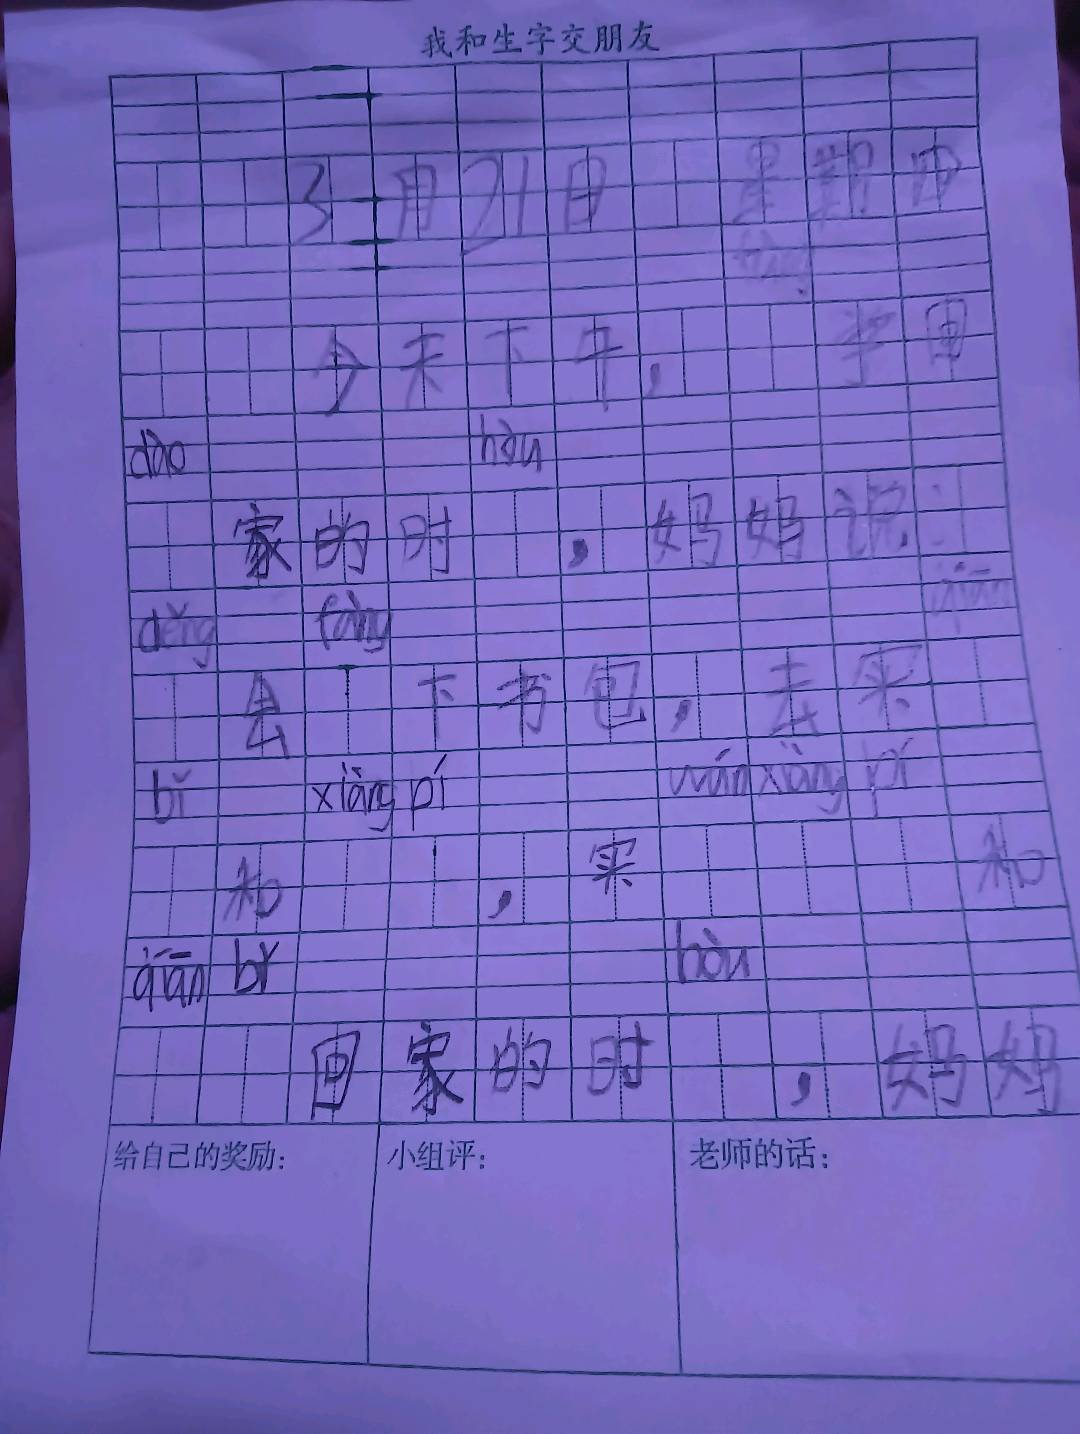 我和生字交朋友
3月21日 星期四
今天下午, 当回
dào hòu
家的时 , 妈妈说:
děng fàng qiān
会 下书包, 去买
bǐ xiàng pí wán xiàng pí
和 , 买 和
qiān bǐ hòu
回家的时 , 妈妈
给自己的奖励: 小组评: 老师的话: